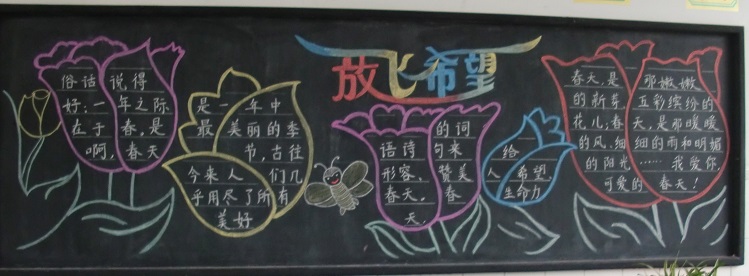 放飞希望
俗话说得
好:一年之际
在于春,是
啊,春天
是一年中
最美丽的季
节,古往
今来人们几
乎用尽了所有
美好
的词
语诗句来
形容、赞美
春天。春
天,
给
人希望,
生命力
春天是那嫩嫩
的新芽,五彩缤纷的
花儿;春天,是那暖暖
的风、细细的雨和明媚
的阳光……我爱你,
可爱的春天!